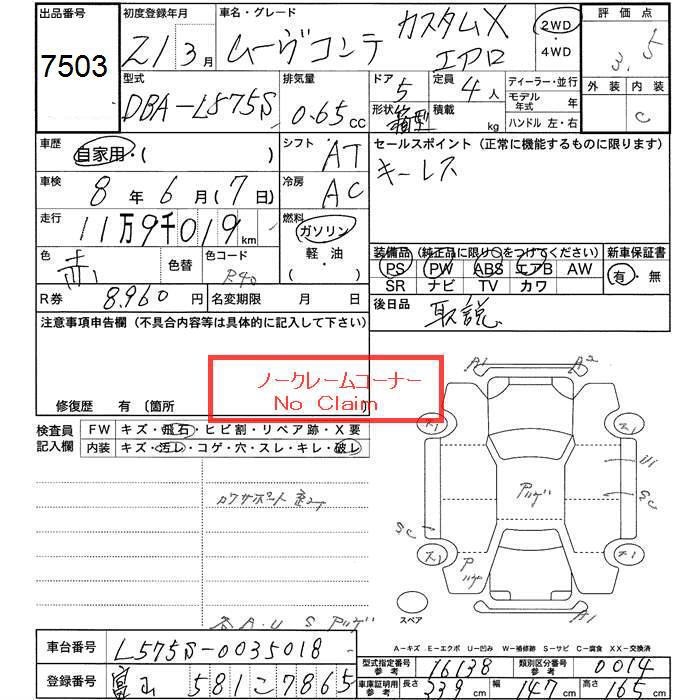 出品番号 初度登録年月 車名・グレード 評価点
7503 21 3月 ムーヴコンテ カスタムX エアロ 2WD・4WD 3.5
型式 排気量 ドア 定員 ディーラー・並行 外装 内装
DBA-L875S 0.65cc 5 4人 モデル年式 年 C
形状 箱型 積載 kg ハンドル 左・右
車歴 シフト セールスポイント(正常に機能するものに限ります)
自家用・( ) AT キーレス
車検 8年6月(7日) 冷房 AC
走行 11万9千019km 燃料 ガソリン・軽油・( )
装備品(純正品に限り○をつけてください) 新車保証書
色 赤 色替 色コード R40 PS PW ABS エアB AW 有・無
SR ナビ TV カワ
R券 8,960円 名変期限 月 日 後日品 取説
注意事項申告欄(不具合内容等は具体的に記入して下さい)
ノークレームコーナー
No Claim
修復歴 有〔箇所
A1 A2
検査員記入欄 FW キズ・飛石・ヒビ割・リペア跡・X要
内装 キズ・汚レ・コゲ・穴・スレ・キレ・破レ
スペア
A-キズ E-エクボ U-凹み W-補修跡 S-サビ C-腐食 XX-交換済
車台番号 L575S-0035018 型式指定番号 参考 16138 類別区分番号 参考 0014
登録番号 富山 581 こ 7865 車庫証明用 参考 長さ 339cm 幅 147cm 高さ 165cm